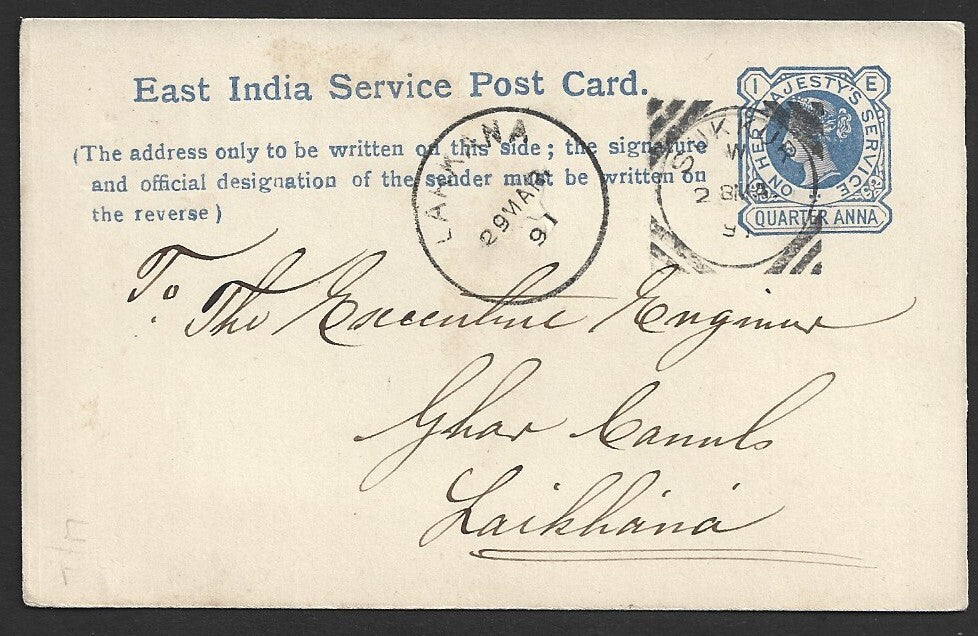 East India Service Post Card.
(The address only to be written on this side; the signature
and official designation of the sender must be written on
the reverse)
I E
ON HER MAJESTY'S SERVICE
QUARTER ANNA
LARKANA
29 MAR
91
SUKKUR
W
28 MA
9
To
The Executive Engineer
Ghar Canals
Larkhana